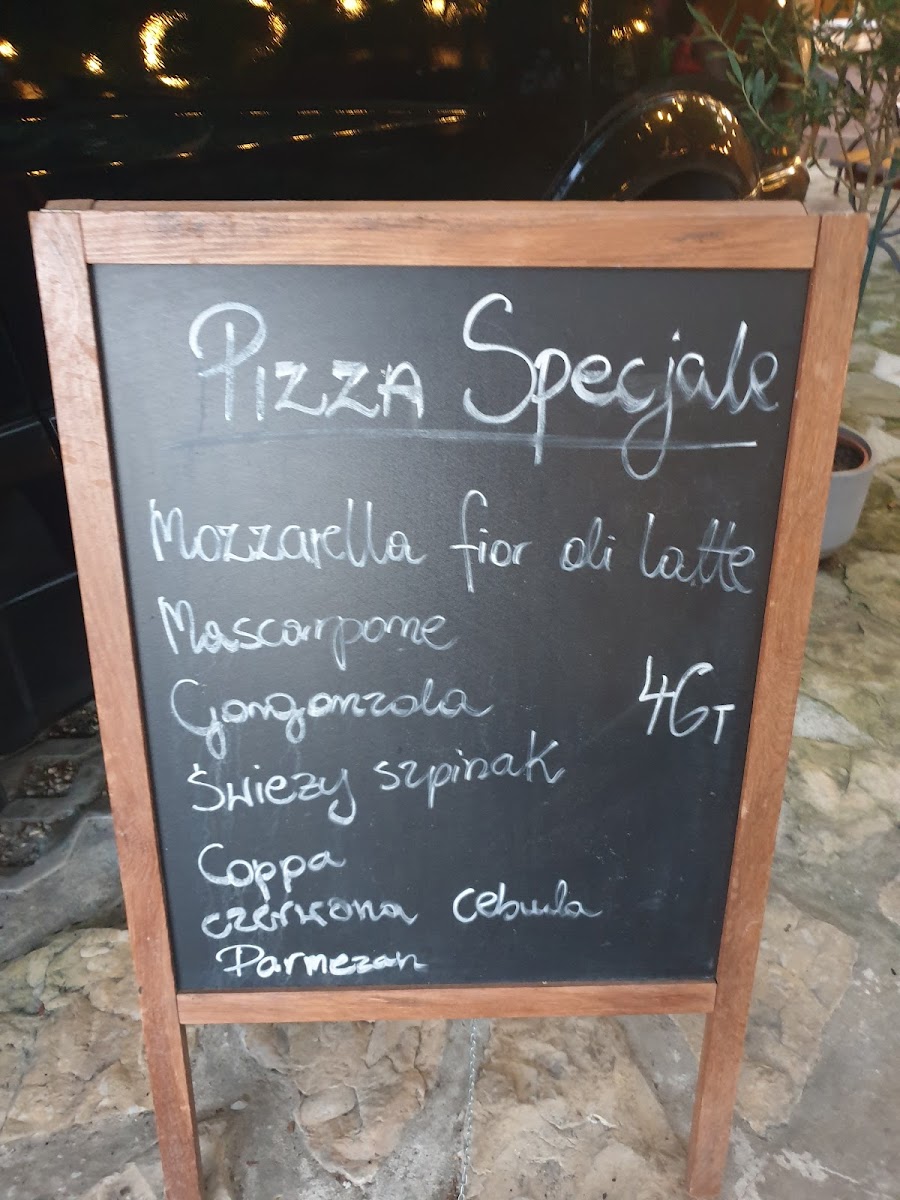 Pizza Specjale
Mozzarella fior di latte
Mascarpone
Gorgonzola
46
Świeży szpinak
Coppa
czerwona cebula
Parmezan